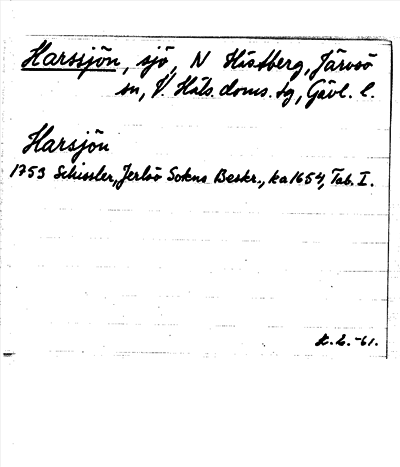 Harsjön, sjö, N Höstberg, Järvsö
sn, V. Häls. doms. tg, Gävl. l.
Harsjön
1753 Schissler, Jerlsö Sokns Beskr., ka 1654, Tab. I.
K. L. -61.